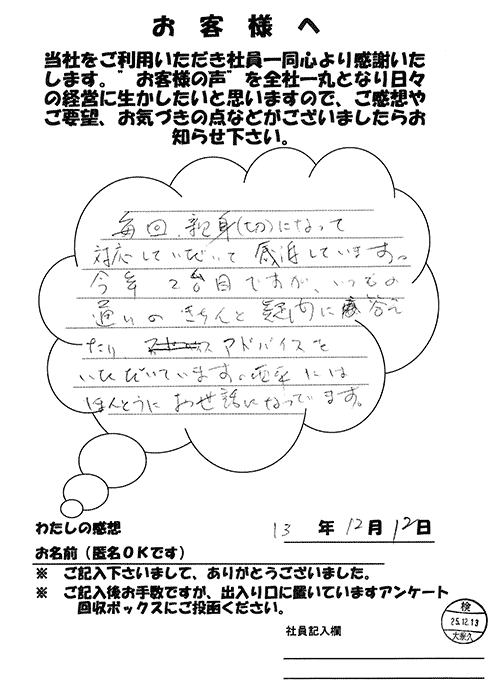 お客様へ
当社をご利用いただき社員一同心より感謝いた
します。"お客様の声"を全社一丸となり日々
の経営に生かしたいと思いますので、ご感想や
ご要望、お気づきの点などがございましたらお
知らせ下さい。
毎回、親身(切)になって
対応していただいて感謝しています。
今年2台目ですが、いつもの
通りのきちんと疑問に答え
たりアドバイスを
いただいています。
ほんとうにお世話になってます。
わたしの感想
13年12月12日
お名前(匿名OKです)
※ ご記入下さいまして、ありがとうございました。
※ ご記入後お手数ですが、出入り口に置いていますアンケート
回収ボックスにご投函ください。
検
25.12.13
大奈久
社員記入欄